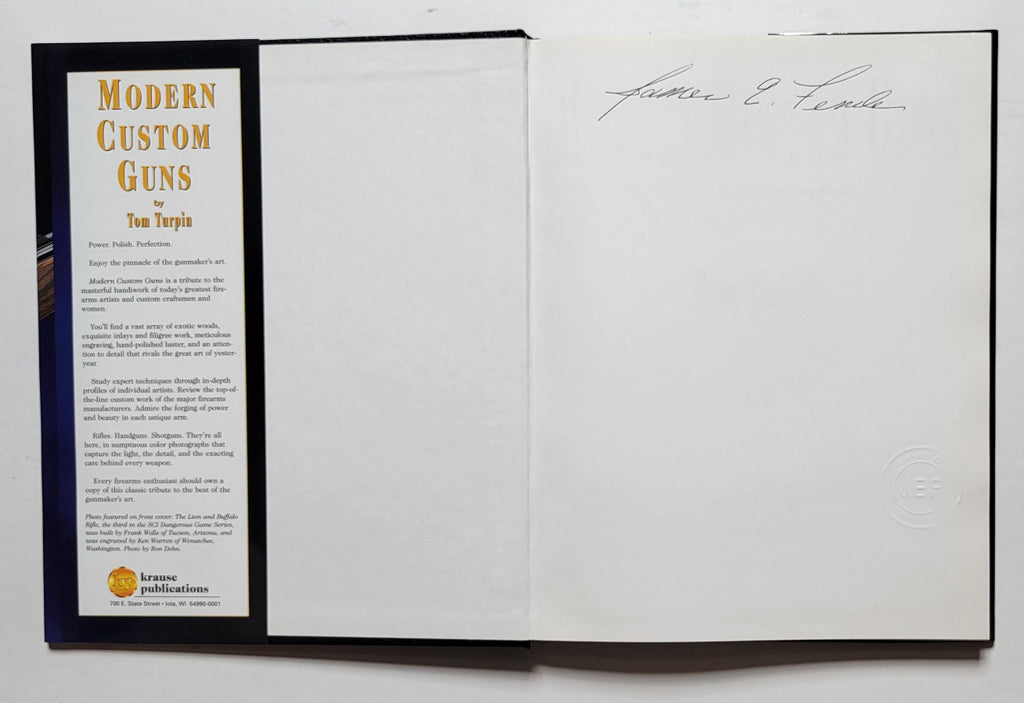 MODERN
CUSTOM
GUNS
by
Tom Turpin
Power. Polish. Perfection.
Enjoy the pinnacle of the gunmaker's art.
Modern Custom Guns is a tribute to the
masterful handiwork of today's greatest fire-
arms artists and custom craftsmen and
women.
You'll find a vast array of exotic woods,
exquisite inlays and filigree work, meticulous
engraving, hand-polished luster, and an atten-
tion to detail that rivals the great art of yester-
year.
Study expert techniques through in-depth
profiles of individual artists. Review the top-of-
the-line custom work of the major firearms
manufacturers. Admire the forging of power
and beauty in each unique arm.
Rifles. Handguns. Shotguns. They're all
here, in sumptuous color photographs that
capture the light, the detail, and the exacting
care behind every weapon.
Every firearms enthusiast should own a
copy of this classic tribute to the best of the
gunmaker's art.
Photo featured on front cover: The Lion and Buffalo
Rifle, the third in the SCI Dangerous Game Series,
was built by Frank Wells of Tucson, Arizona, and
was engraved by Ken Warren of Wenatchee,
Washington. Photo by Ron Dehn.
krause
publications
700 E. State Street • Iola, WI 54990-0001
James E. Fende
JEF